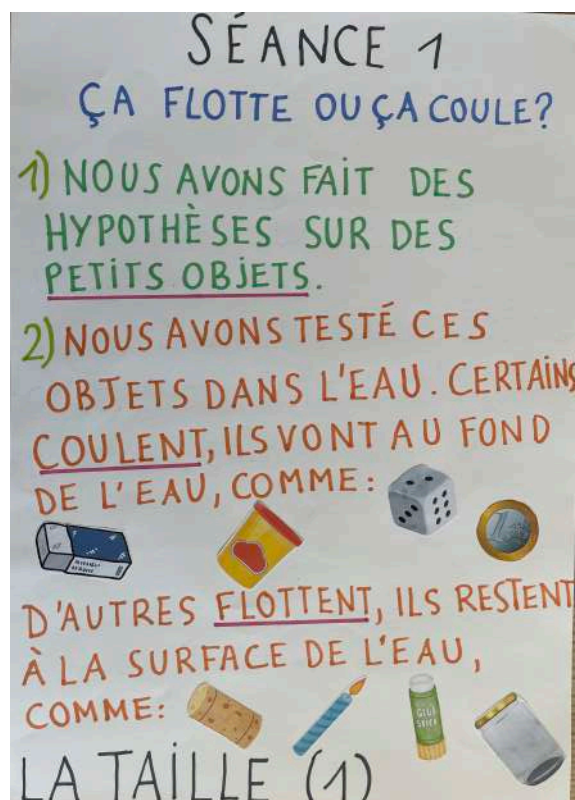 SÉANCE 1
ÇA FLOTTE OU ÇA COULE?
1) NOUS AVONS FAIT DES
HYPOTHÈSES SUR DES
PETITS OBJETS.
2) NOUS AVONS TESTÉ CES
OBJETS DANS L'EAU. CERTAINS
COULENT, ILS VONT AU FOND
DE L'EAU, COMME:
D'AUTRES FLOTTENT, ILS RESTENT
À LA SURFACE DE L'EAU,
COMME:
GLUE
STICK
LA TAILLE (1)